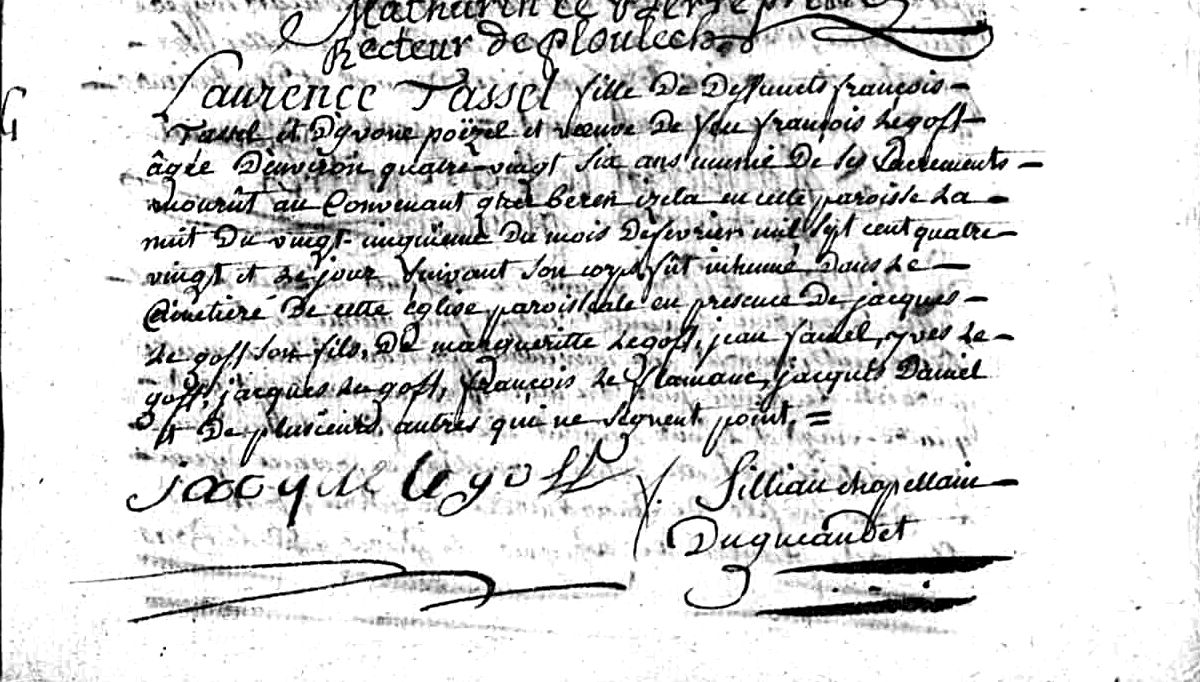 Mathurin Le
Recteur de Ploulech
Laurence Tassel fille de deffuncts françois
Tassel et d'yvone poëzel et vœuve de feu françois Le goff
âgée d'environ quatre vingt six ans munie de ses sacrements
mourût au Convenant en cette paroisse La
nuit du vingt cinquieme du mois de fevrier mil sept cent quatre
vingt et Le jour suivant son corps fût inhumé dans Le
Cimetiére de cette église paroissiale en presence de jacques
Le goff son fils, De margueritte Le goff, jean yves Le
goff, jacques Le goff, françois Le flamanc, jacques Daniel
et De plusieurs autres qui ne signent point. =
jacque le goff
chapellain